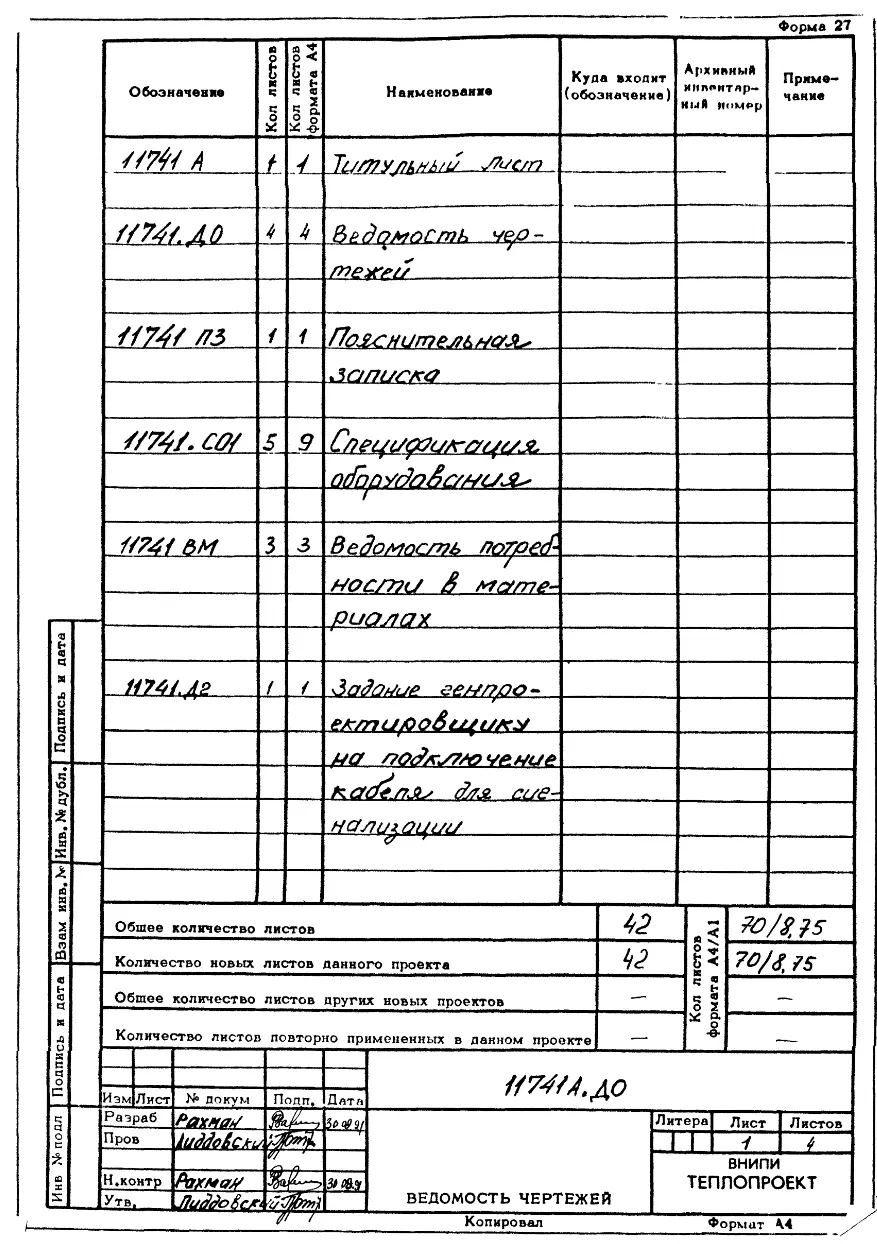 Форма 27
Обозначение Кол листов Кол листов формата А4 Наименование Куда входит (обозначение) Архивный инвентарный номер Примечание
11741 А 1 1 Титульный лист
11741.ДО 4 4 Ведомость чер-
тежей
11741 ПЗ 1 1 Пояснительная
записка
11741.СО1 5 9 Спецификация
оборудования
11741 ВМ 3 3 Ведомость потреб-
ности в мате-
риалах
11741.Д2 1 1 Задание генпро-
ектировщику
на подключение
кабеля для сиг-
нализации
Общее количество листов 42 Кол листов формата А4/А1 70/8,75
Количество новых листов данного проекта 42 70/8,75
Общее количество листов других новых проектов — —
Количество листов повторно примененных в данном проекте — —
Подпись и дата
Инв. № дубл.
Взам инв. №
Подпись и дата
Инв № подл
11741А.ДО
Изм Лист № докум Подп. Дата
Разраб Рахман 30 08 91
Пров Лиддовский
Н.контр Рахман 30 08 91
Утв. Лиддовский
ВЕДОМОСТЬ ЧЕРТЕЖЕЙ
Литера Лист Листов
1 4
ВНИПИ
ТЕПЛОПРОЕКТ
Копировал Формат А4